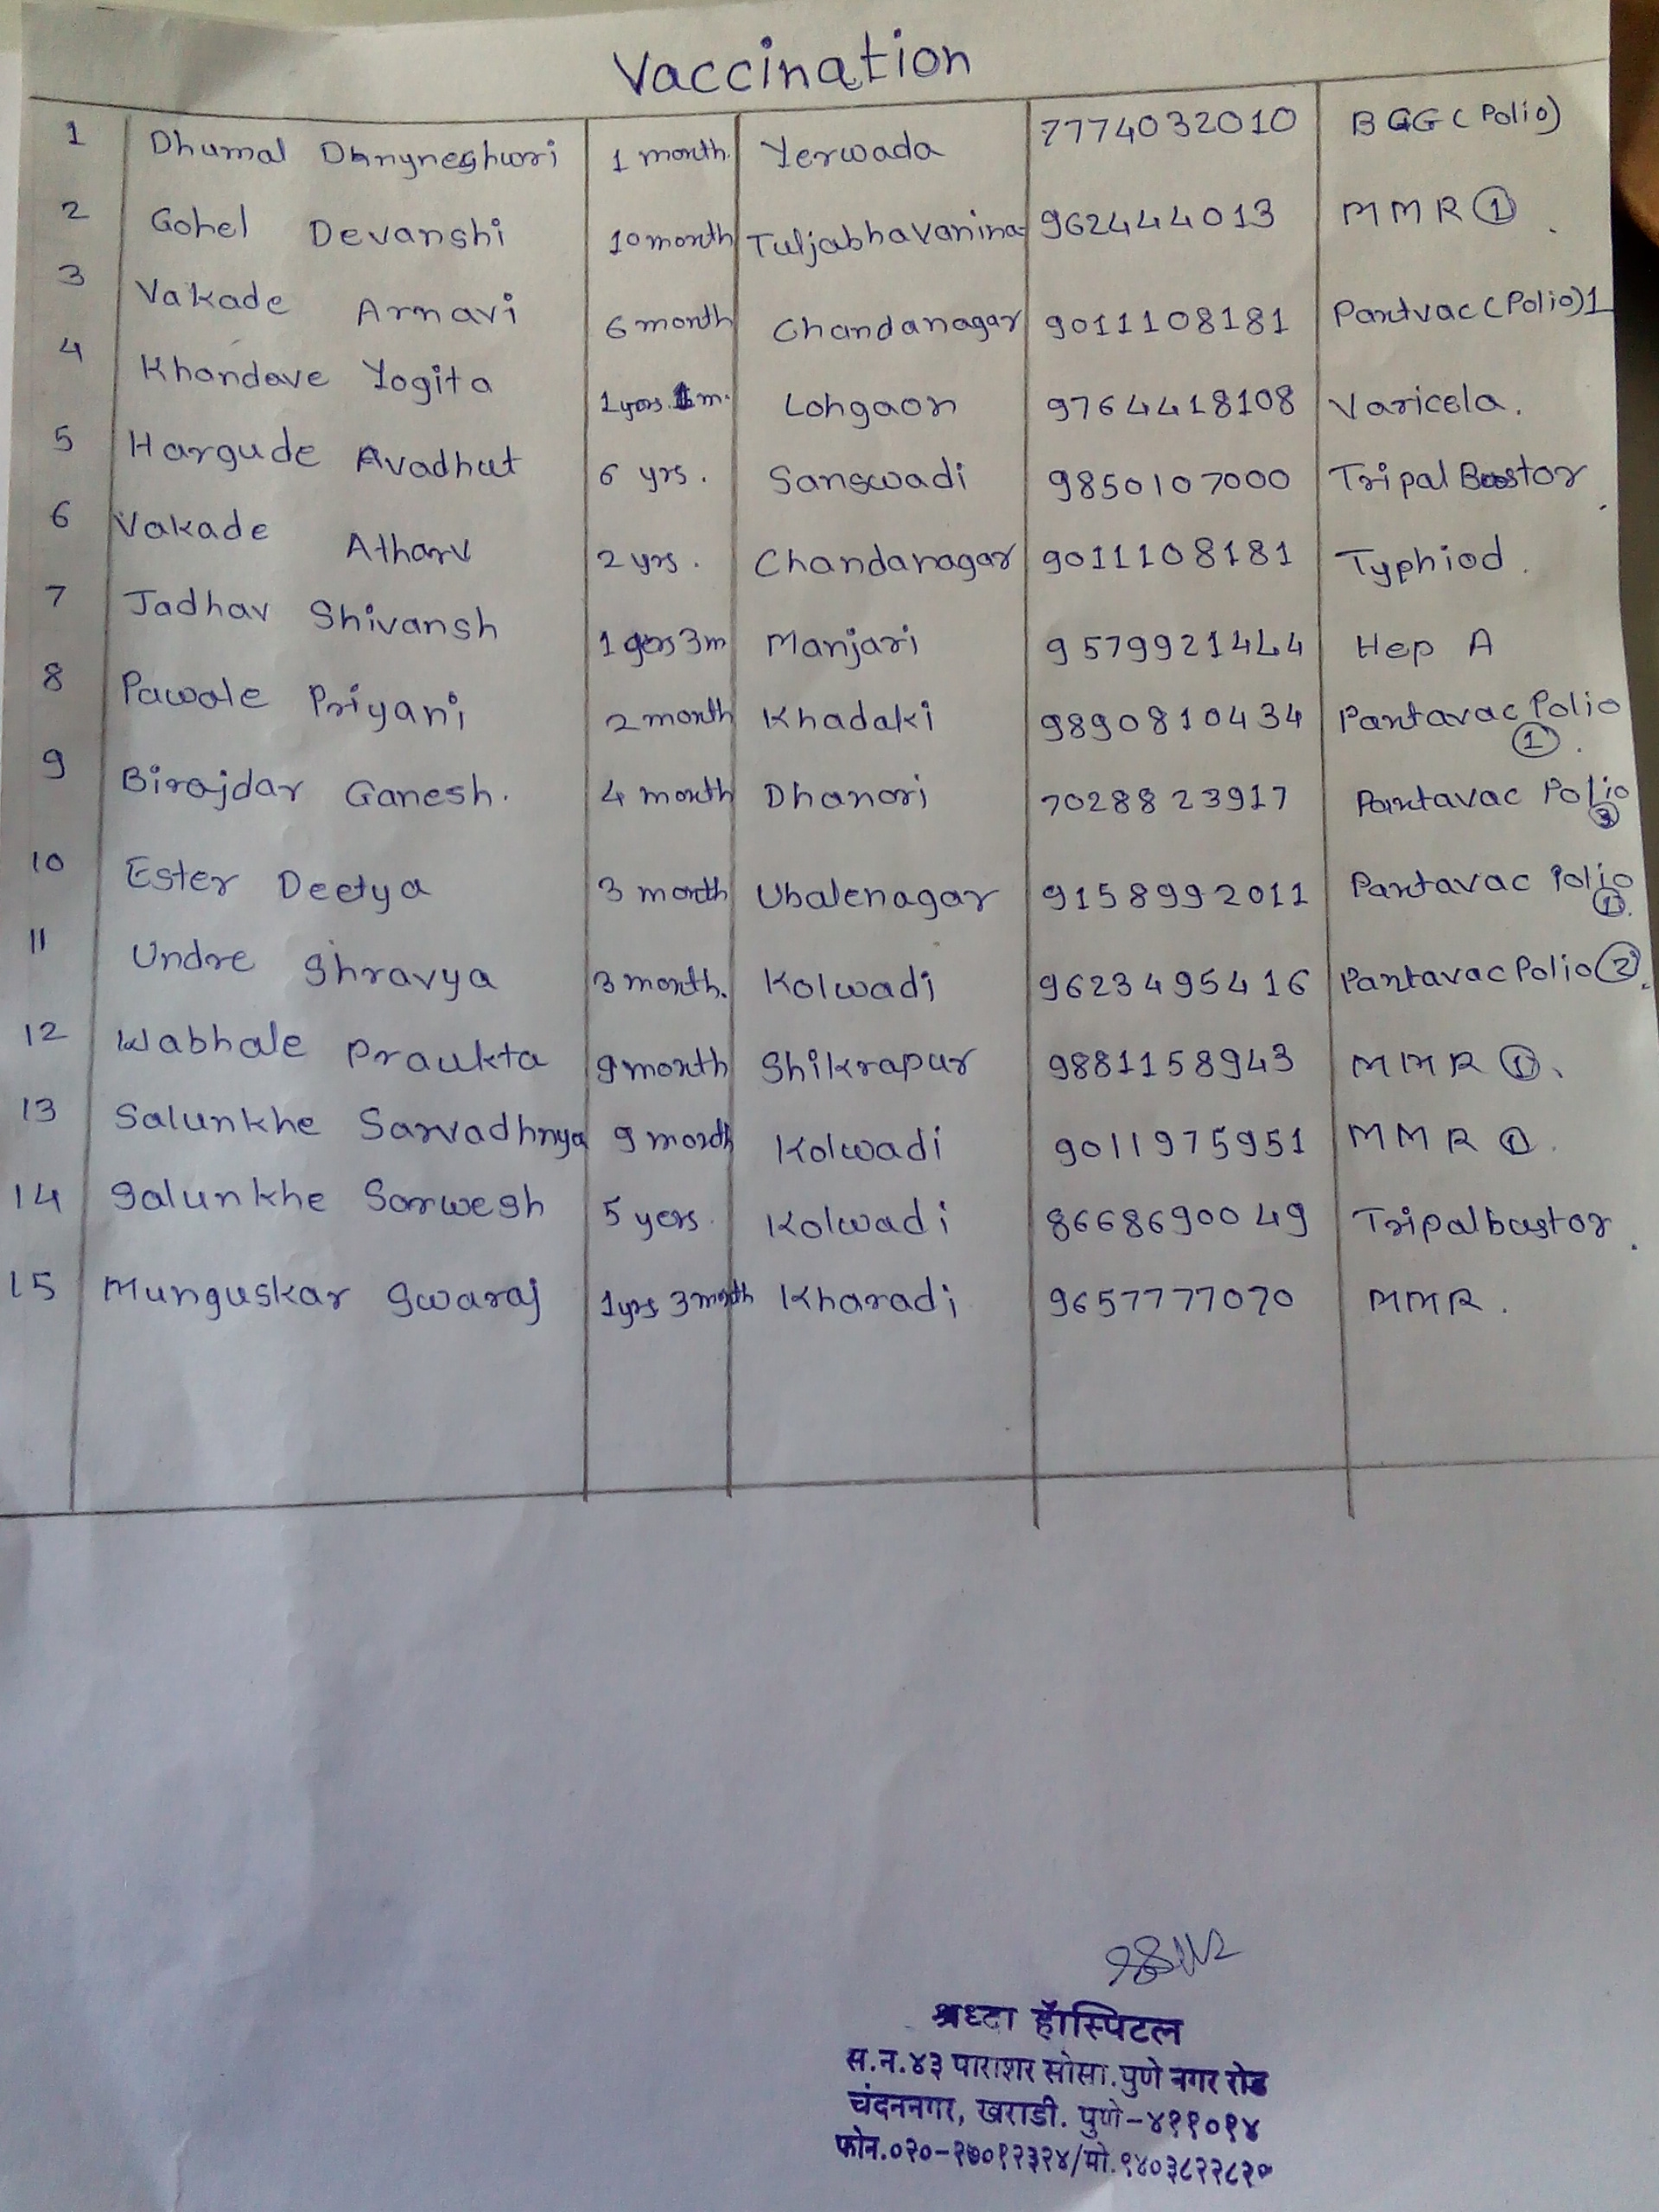 Vaccination
1 Dhumal Dnnyneshwri 1 month. Yerwada 7774032010 BCG (Polio)
2 Gohel Devanshi 10 month Tuljabhavanina- 962444013 MMR 1
3 Vakade Arnavi 6 month Chandanagar 9011108181 Pantvac (Polio) 1
4 Khandave Yogita 1 yers. 1 m. Lohgaon 9764418108 Varicela.
5 Hargude Avadhut 6 yrs. Sanswadi 9850107000 Tripal Bustor.
6 Vakade Atharv 2 yrs. Chandanagar 9011108181 Typhiod.
7 Jadhav Shivansh 1 yers 3m Manjari 9579921444 Hep A
8 Pawale Priyani 2 month Khadaki 9890810434 Pantavac Polio 1.
9 Birajdar Ganesh. 4 month Dhanori 7028823917 Pantavac Polio 3
10 Ester Deetya 3 month Ubalenagar 9158992011 Pantavac Polio 1.
11 Undre Shravya 3 month. Kolwadi 9623495416 Pantavac Polio 2.
12 Wabhale Praukta 9 month Shikrapur 9881158943 MMR 1.
13 Salunkhe Sarvadhnya 9 month Kolwadi 9011975951 MMR 1.
14 Salunkhe Sarwesh 5 yers. Kolwadi 8668690049 Tripalbustor.
15 Munguskar Swaraj 1 yrs 3 month Kharadi 9657777070 MMR.
श्रध्दा हॉस्पिटल
स.न.४३ पाराशर सोसा.पुणे नगर रोड
चंदननगर, खराडी. पुणे-४११०१४
फोन.०२०-२७०१२३२४/मो.९४०३८२२८२०